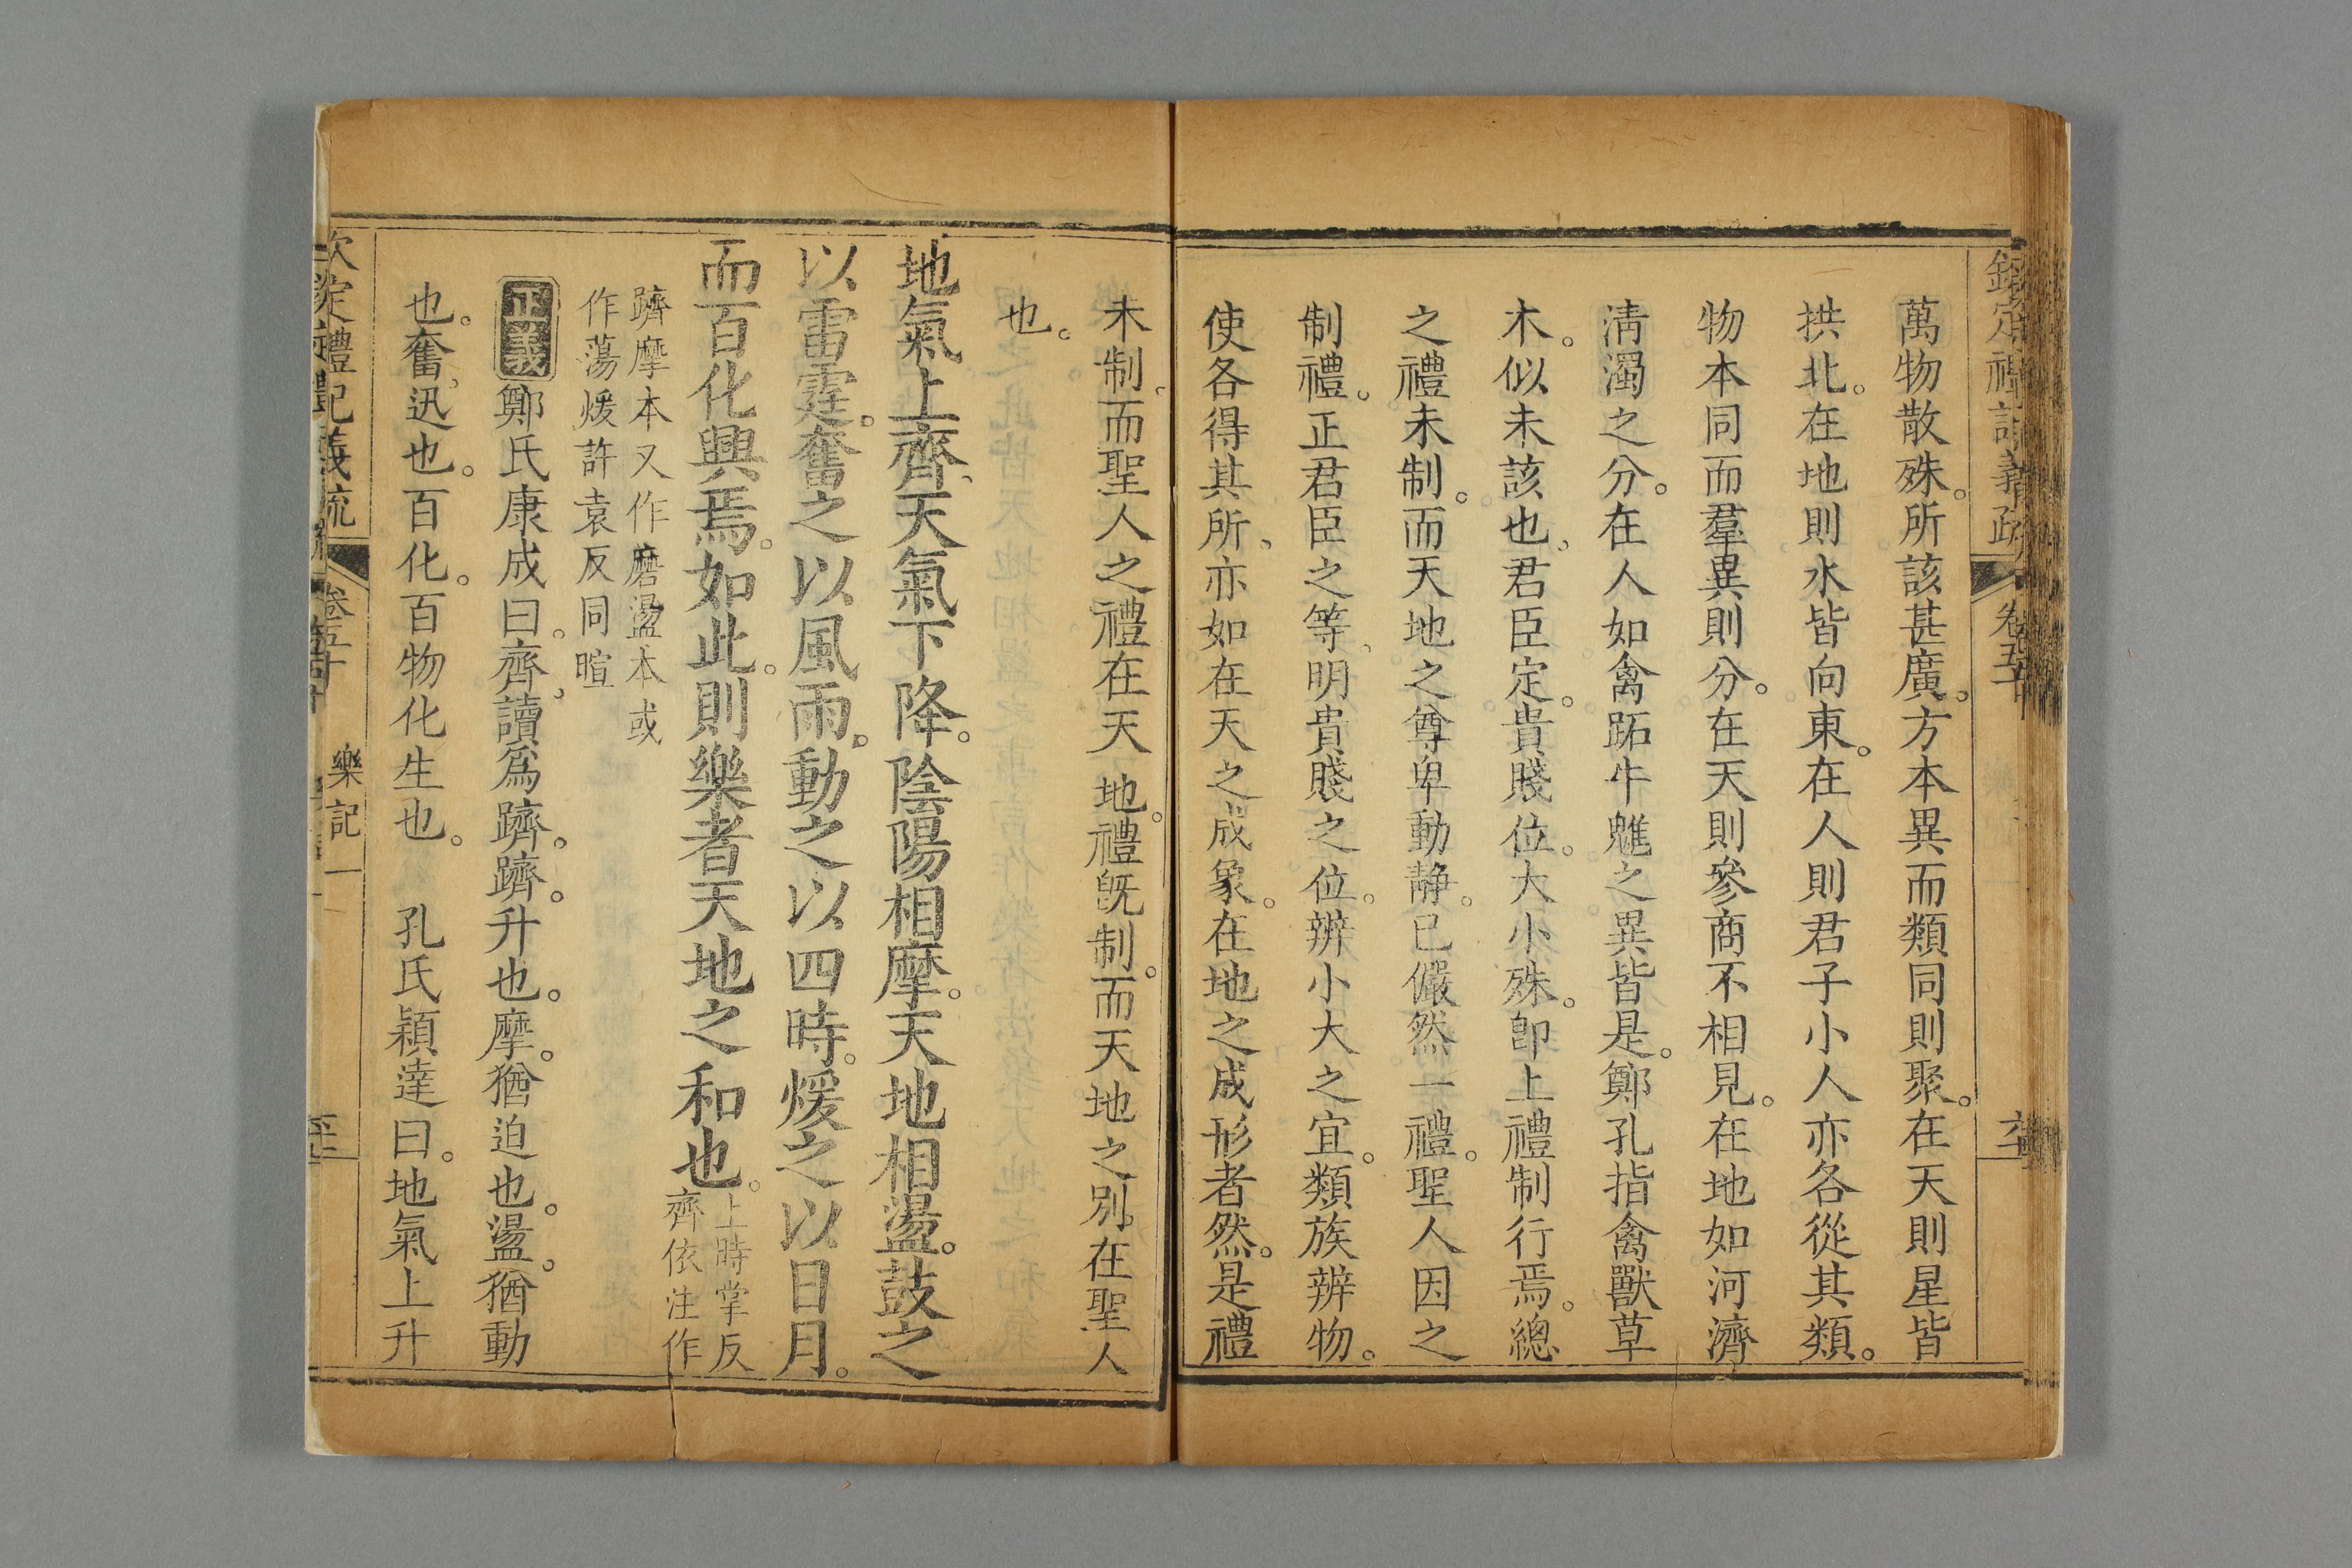 欽定禮記義疏 卷五十
萬物散殊。所該甚廣。方本異而類同則聚。在天則星皆
拱北。在地則水皆向東。在人則君子小人亦各從其類。
物本同而羣異則分。在天則參商不相見。在地如河濟
淸濁之分。在人如禽跖牛魋之異皆是。鄭孔指禽獸草
木。似未該也、君臣定。貴賤位。大小殊。卽上禮制行焉。總
之禮未制。而天地之尊卑動靜。已儼然一禮。聖人因之
制禮。正君臣之等、明貴賤之位。辨小大之宜。類族辨物。
使各得其所、亦如在天之成象。在地之成形者然。是禮
未制、而聖人之禮在天地。禮旣制。而天地之別。在聖人
也。
地氣上齊、天氣下降。陰陽相摩。天地相盪。鼓之
以雷霆。奮之以風雨。動之以四時。煖之以日月。
而百化興焉。如此。則樂者天地之和也。上時掌反
齊依注作
躋摩本又作磨盪本或
作蕩煖許袁反同暄
正義鄭氏康成曰。齊、讀爲躋。躋。升也。摩。猶迫也。盪。猶動
也。奮、迅也。百化。百物化生也。 孔氏穎達曰。地氣上升
欽定禮記義疏 卷五十 樂記一